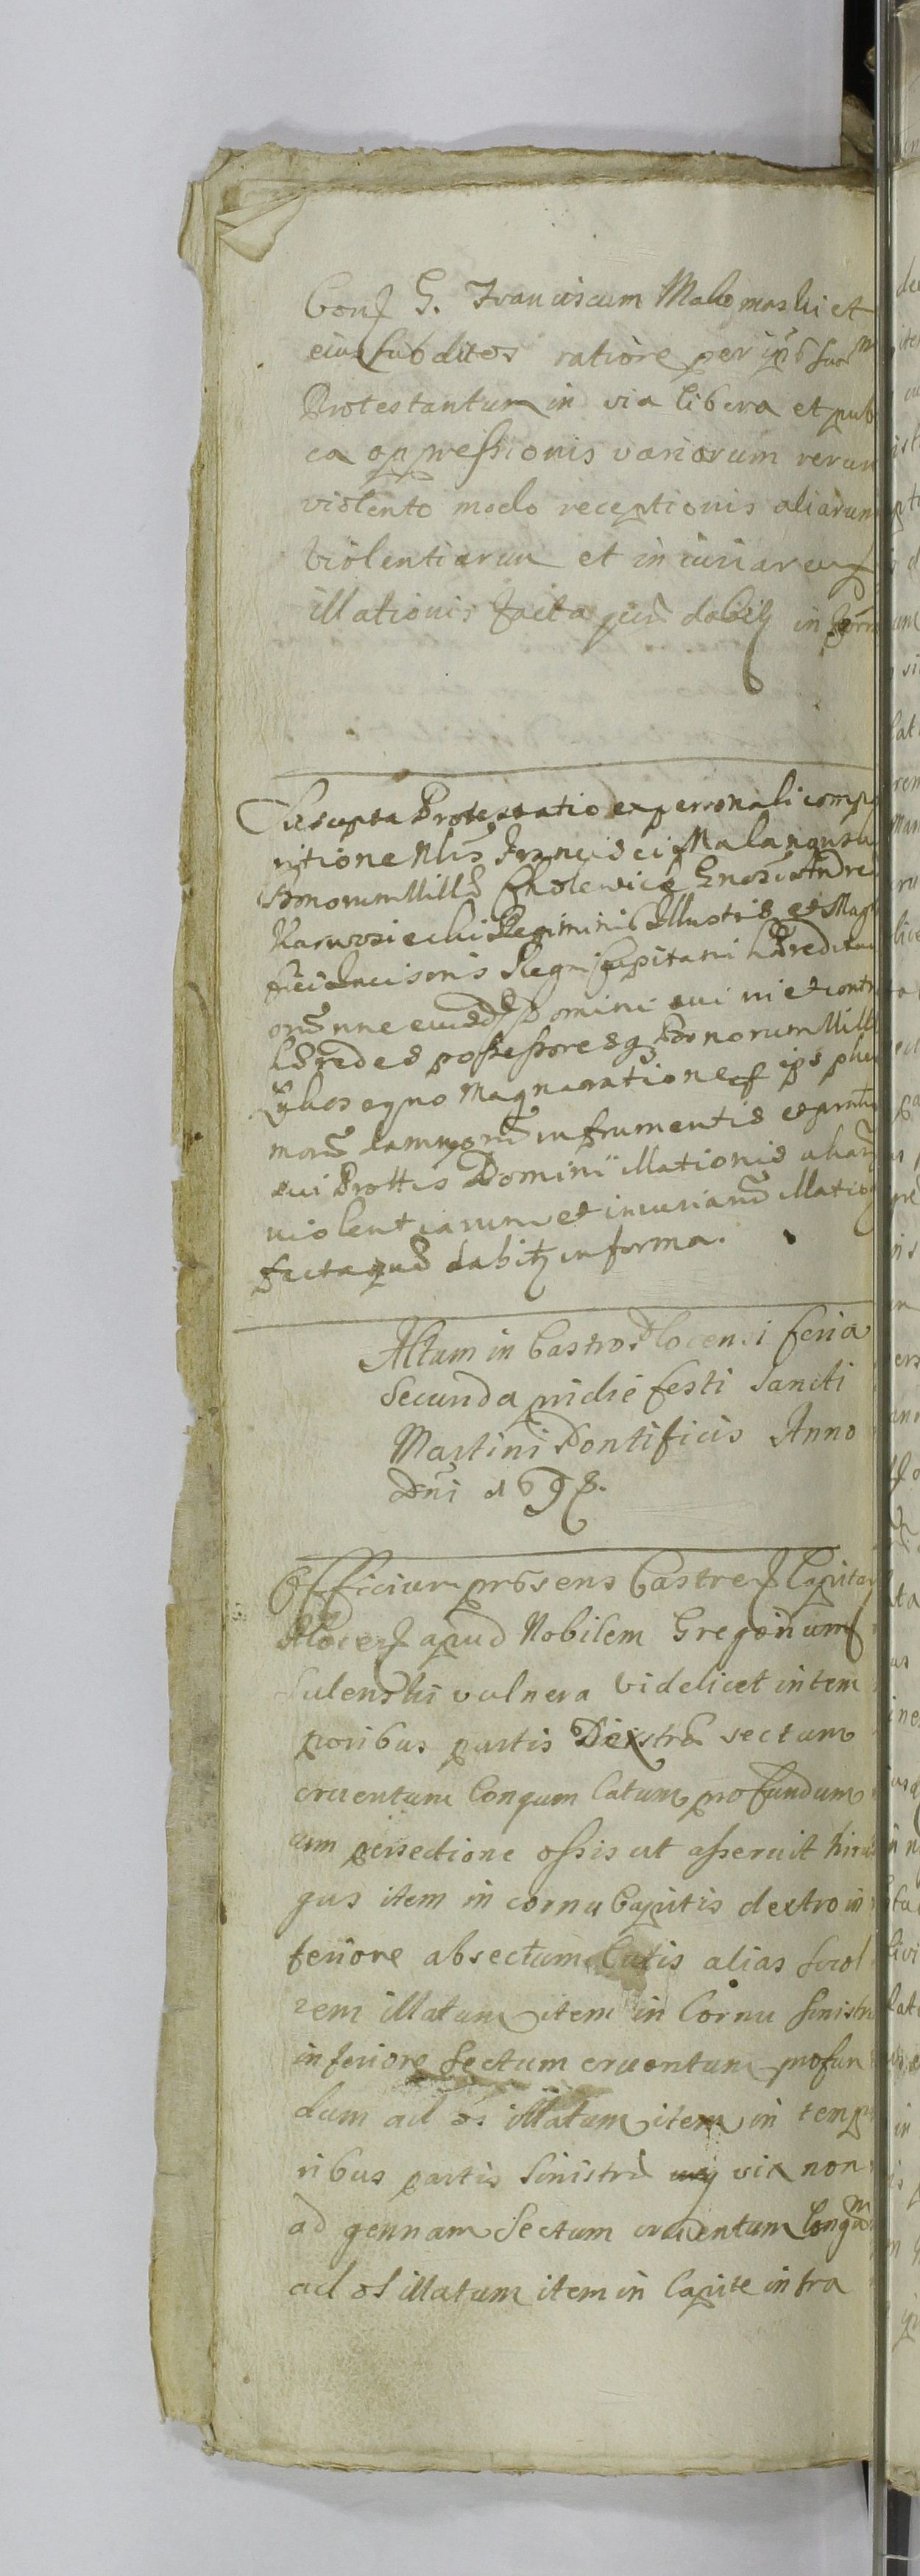 Cons G. Franciscum Malomoski et
eius subditos ratione per ipsos suos
Protestantum in via libera et pub
ca oppressionis variorum rerum
violento modo receptionis aliarum
violentiarum et iniuriarum
illationis facta quae dabitz in form
Suscepta Protestatio ex personali comp
ritione Nlis Francisci Malanowski
Bonorum Villae Cholewice Gnosi Andre
Karwosiecki Regiminis Illustris et Mag
fici Incisoris Regni Capitani haereditar
noie eiusdem Domini sui in et contr
haeredes possessores q Bonorum Villae
Magna ratione ips plu
morum damnorum in frumentis et pratis
sui Prottis Domini illationis aliar
violentiarum et iniuriarum illatio
facta quae dabitz in forma.
Actum in Castro Plocensi feria
Secunda pridie festi Sancti
Martini Pontificis Anno
Dni 1698.
Officium praesens Castren Capita
Plocen apud Nobilem Gregorium
Sulenski vulnera videlicet in tem
poribus partis Dextrae sectum
cruentum Conquvn Catum profundum
cum persectione ossis ut asseruit hirur
gus item in cornu Capitis dextro in
feriore absectum Cutis alias
rem illatum item in Cornu sinistr
inferiore sectum cruentum profun
dum ad os illatum item in tempo
ribus partis Sinistrae via non
ad gennam Sectum cruentum longum
ad os illatum item in Capite infra